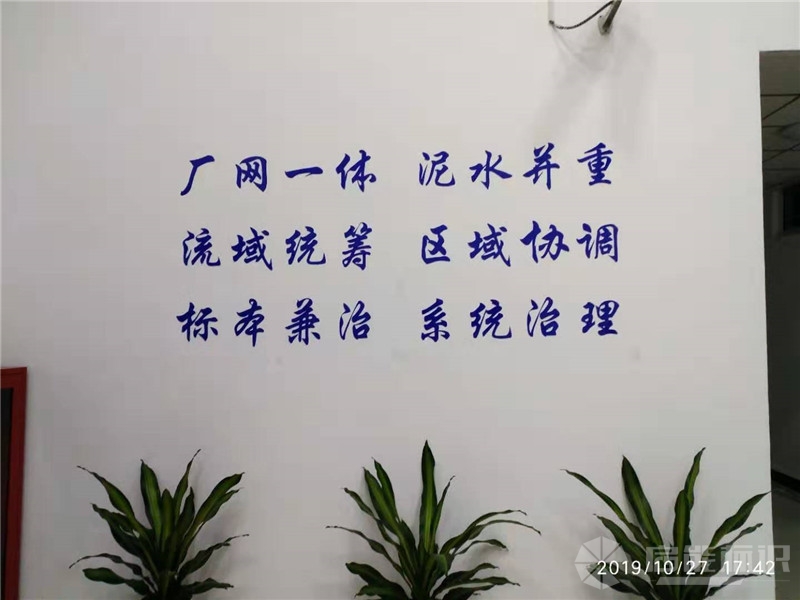 厂网一体 泥水并重
流域统筹 区域协调
标本兼治 系统治理
2019/10/27 17:42